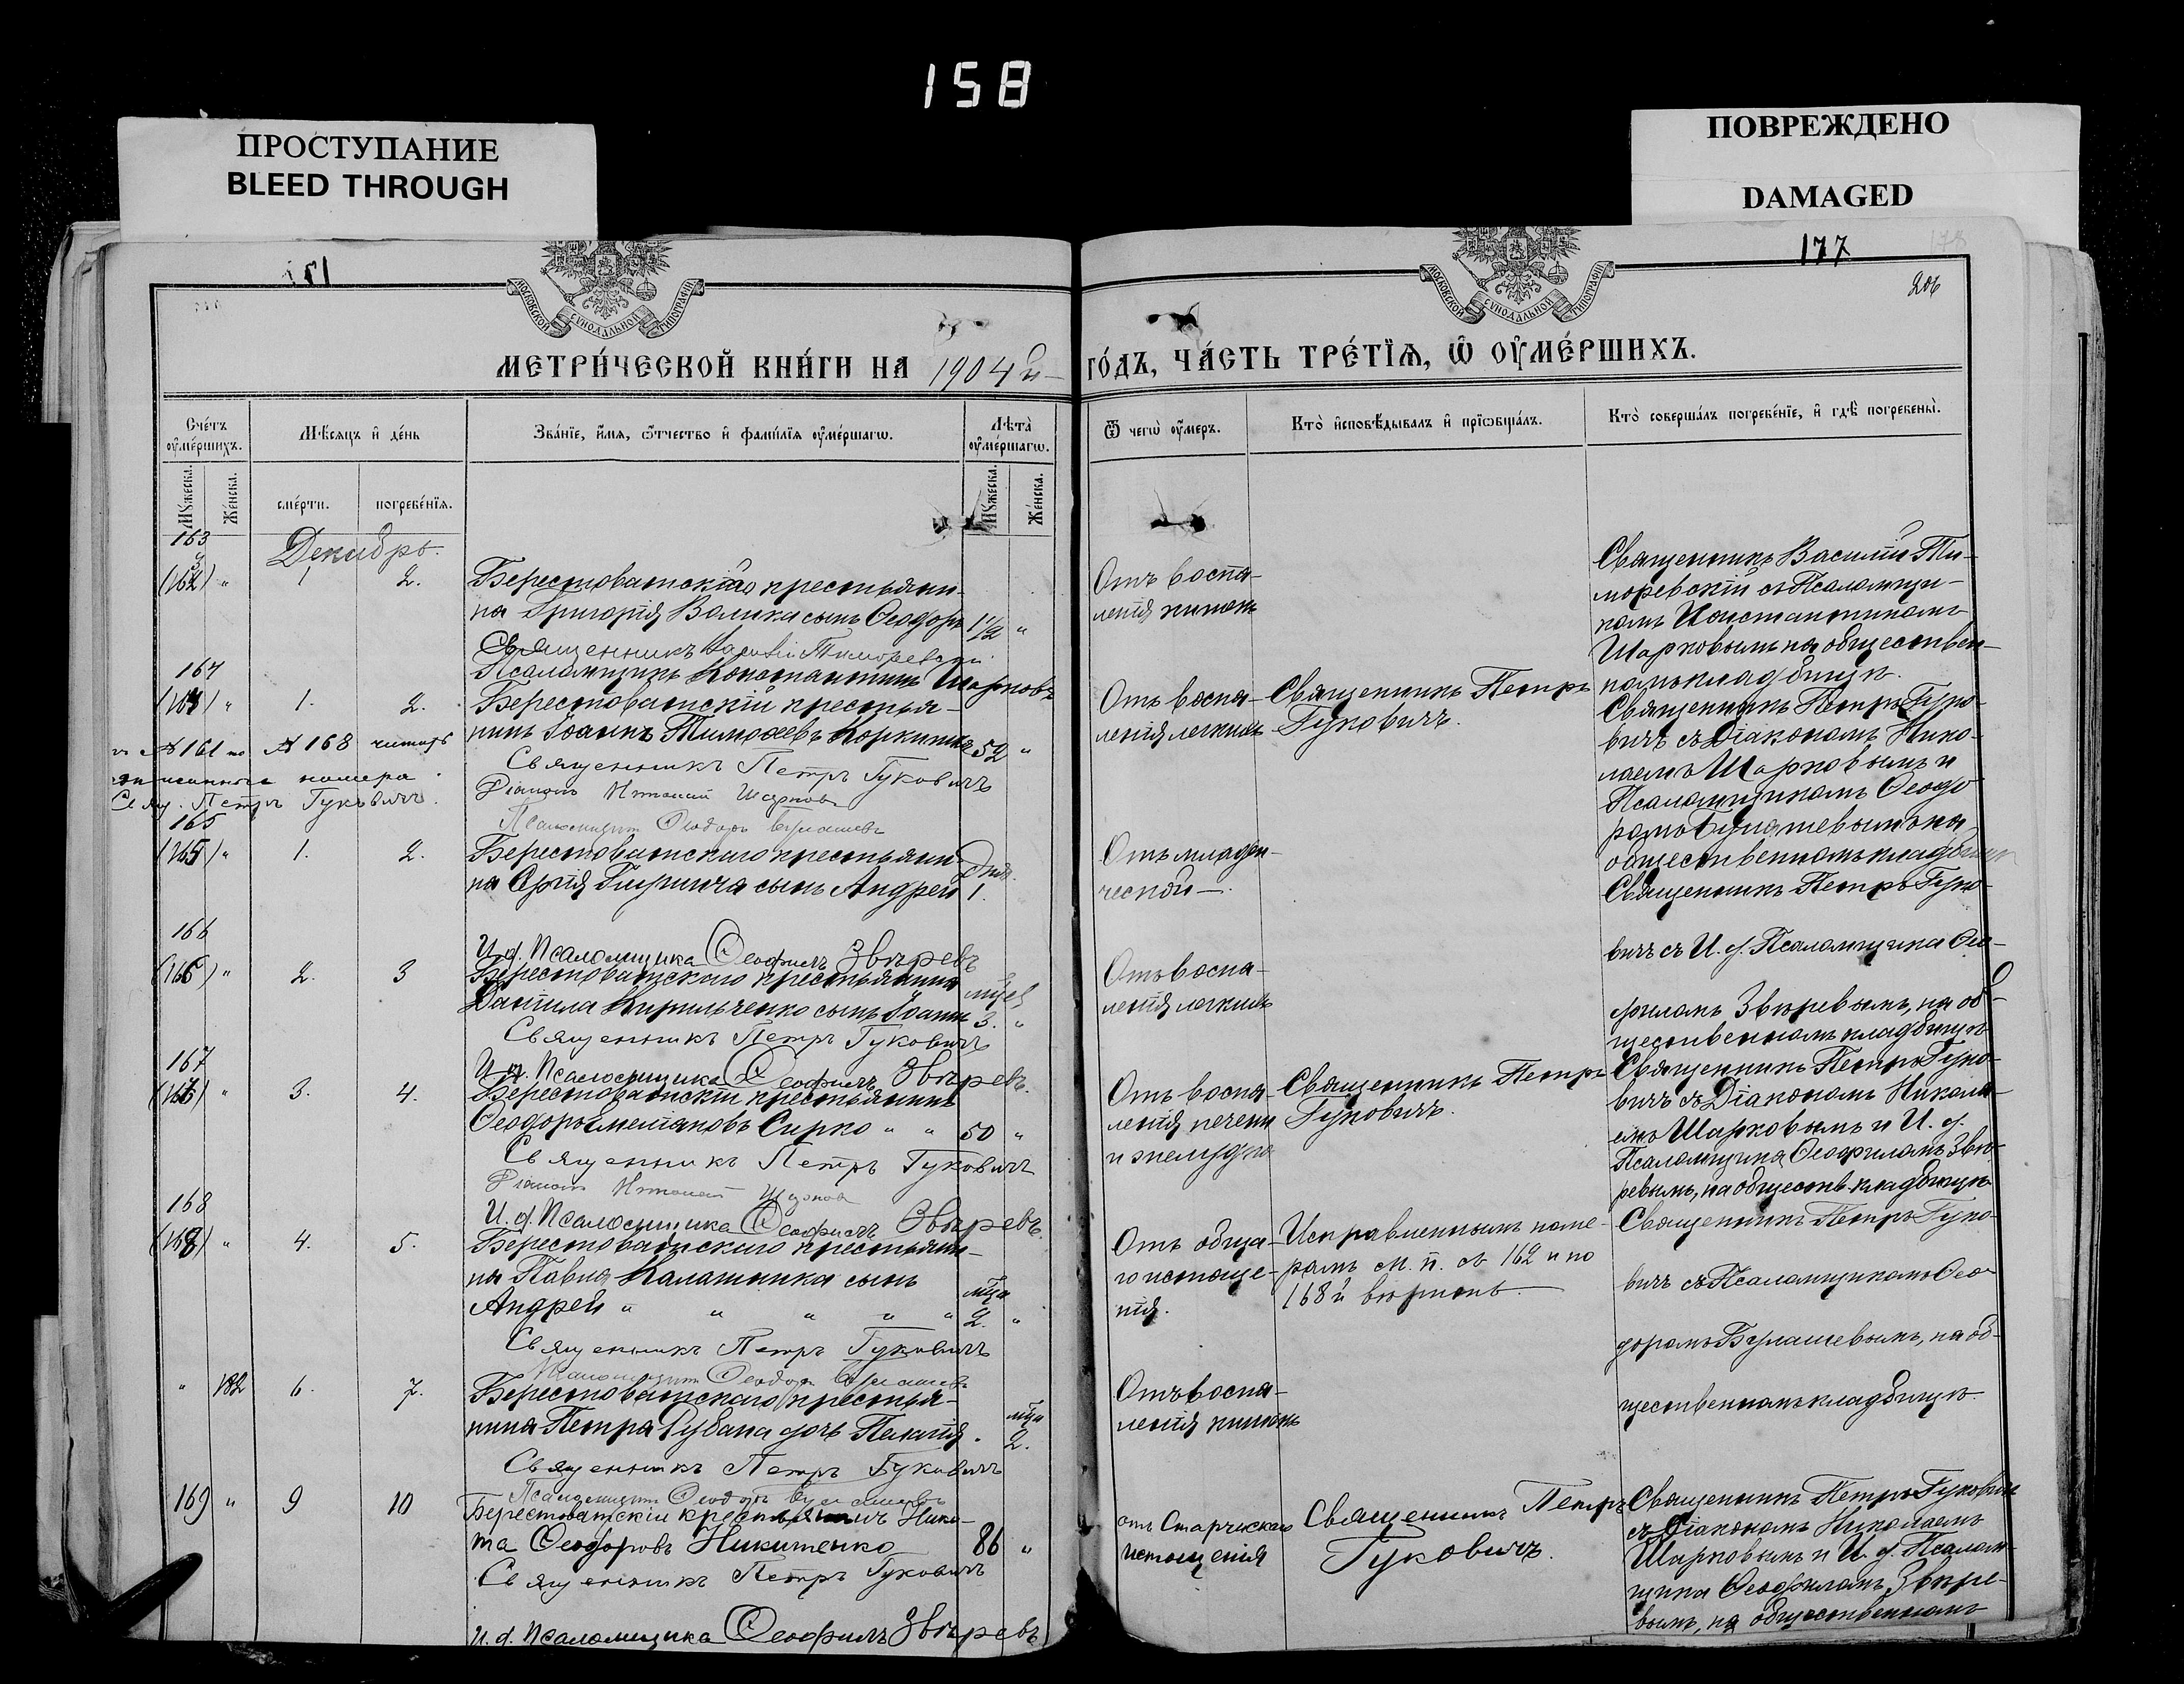 158
ПРОСТУПАНИЕ
BLEED THROUGH
ПОВРЕЖДЕНО
DAMAGED
177
206
МОСКОВСКОЙ СѴНОДАЛЬНОЙ ТИПОГРАФІИ
МОСКОВСКОЙ СѴНОДАЛЬНОЙ ТИПОГРАФІИ
МЕТРИ́ЧЕСКОЙ КНИ́ГИ НА 1904й ГО́ДЪ, ЧА́СТЬ ТРЕ́ТІѦ, Ѿ ОУ҆МЕ́РШИХЪ.
Сче́тъ оу҆ме́ршихъ.
Мѣ́сяцъ и҆ де́нь
Зва́нїе, и҆́мѧ, ѻ҆́тчество и҆ фами́лїѧ оу҆ме́ршагѡ.
Лѣ́та оу҆ме́ршагѡ.
Ѿ чегѡ̀ оу҆́меръ.
Кто̀ и҆сповѣ́дывалъ и҆ прїѡбща́лъ.
Кто̀ соверша́лъ погребе́нїе, и҆ гдѣ̀ погребены̀.
Мꙋ́жеска.
Же́нска.
сме́рти.
погребе́нїѧ.
Мꙋ́жеска.
Же́нска.
163
Декабрь.
1 2.
Берестоватскаго крестьяни-
на Григорія Волика сынъ Ѳеодоръ 1½ "
Священникъ Василій Тиморевскій
Псаломщикъ Константинъ Шарковъ
Отъ воспа-
ленія кишекъ
Священникъ Василій Ти-
моревскій съ Псаломщи-
комъ Константиномъ
Шарковымъ на обществен-
номъ кладбищѣ.
164
1. 2.
Берестоватскій крестья-
нинъ Іоаннъ Тимоѳеевъ 52 "
Священникъ Петръ Гуковичъ
Діаконъ Николай Шарковъ
Псаломщикъ Ѳеодоръ Булашевъ
Отъ воспа-
ленія легкихъ
Священникъ Петръ
Гуковичъ.
Священникъ Петръ Гуко-
вичъ съ Діакономъ Нико-
лаемъ Шарковымъ и
Псаломщикомъ Ѳеодо-
ромъ Булашевымъ на
общественномъ кладбищѣ
№ 161 по № 168 читать
номера
Свящ. Петръ Гуковичъ.
165
1. 2.
Берестоватскаго крестьяни-
на сынъ Андрей 1.
И.д. Псаломщика Ѳеофилъ Звѣревъ
Отъ младен-
ческой —.
Священникъ Петръ Гуко-
вичъ съ И. д. Псаломщика Ѳео-
филомъ Звѣревымъ, на об-
щественномъ кладбищѣ
166
2. 3
Берестоватскаго крестьянина
Даніила Кирильченко сынъ Іоаннъ 3. "
Священникъ Петръ Гуковичъ
И.д. Псаломщика Ѳеофилъ Звѣревъ.
Отъ воспа-
ленія легкихъ
167
3. 4.
Берестоватскій крестьянинъ
Ѳеодоръ Емеліановъ Сирко " " 50 "
Священникъ Петръ Гуковичъ
Діаконъ Николай Шарковъ
И.д. Псаломщика Ѳеофилъ Звѣревъ.
Отъ воспа-
ленія печени
и желудка
Священникъ Петръ
Гуковичъ.
Священникъ Петръ Гуко-
вичъ съ Діакономъ Никола-
емъ Шарковымъ и И. д.
Псаломщика Ѳеофиломъ Звѣ-
ревымъ, на обществ. кладбищѣ
168
4. 5.
Берестоватскаго крестьяни-
на Павла Калашника сынъ
Андрей " " " " " мца 2. "
Священникъ Петръ Гуковичъ
Псаломщикъ Ѳеодоръ Булашевъ
Отъ обща-
го истоще-
нія.
Исправленнымъ номе-
рамъ м. п. съ 162 и по
168й вѣрить.
Священникъ Петръ Гуко-
вичъ съ Псаломщикомъ Ѳео-
доромъ Булашевымъ, на об-
щественномъ кладбищѣ.
" 182 6. 7.
Берестоватскаго крестья-
нина Петра Рубана дочь Пелагія. мца 2.
Священникъ Петръ Гуковичъ
Псаломщикъ Ѳеодоръ Булашевъ
Отъ воспа-
ленія кишекъ
169 " 9 10
Берестоватскій крестьянинъ Ники-
та Ѳеодоровъ Никитенко 86 "
Священникъ Петръ Гуковичъ
И.д. Псаломщика Ѳеофилъ Звѣревъ
отъ Старческаго
истощенія
Священникъ Петръ
Гуковичъ.
Священникъ Петръ Гуковичъ
съ Діакономъ Николаемъ
Шарковымъ и И. д. Псалом-
щика Ѳеофиломъ Звѣре-
вымъ, на общественномъ